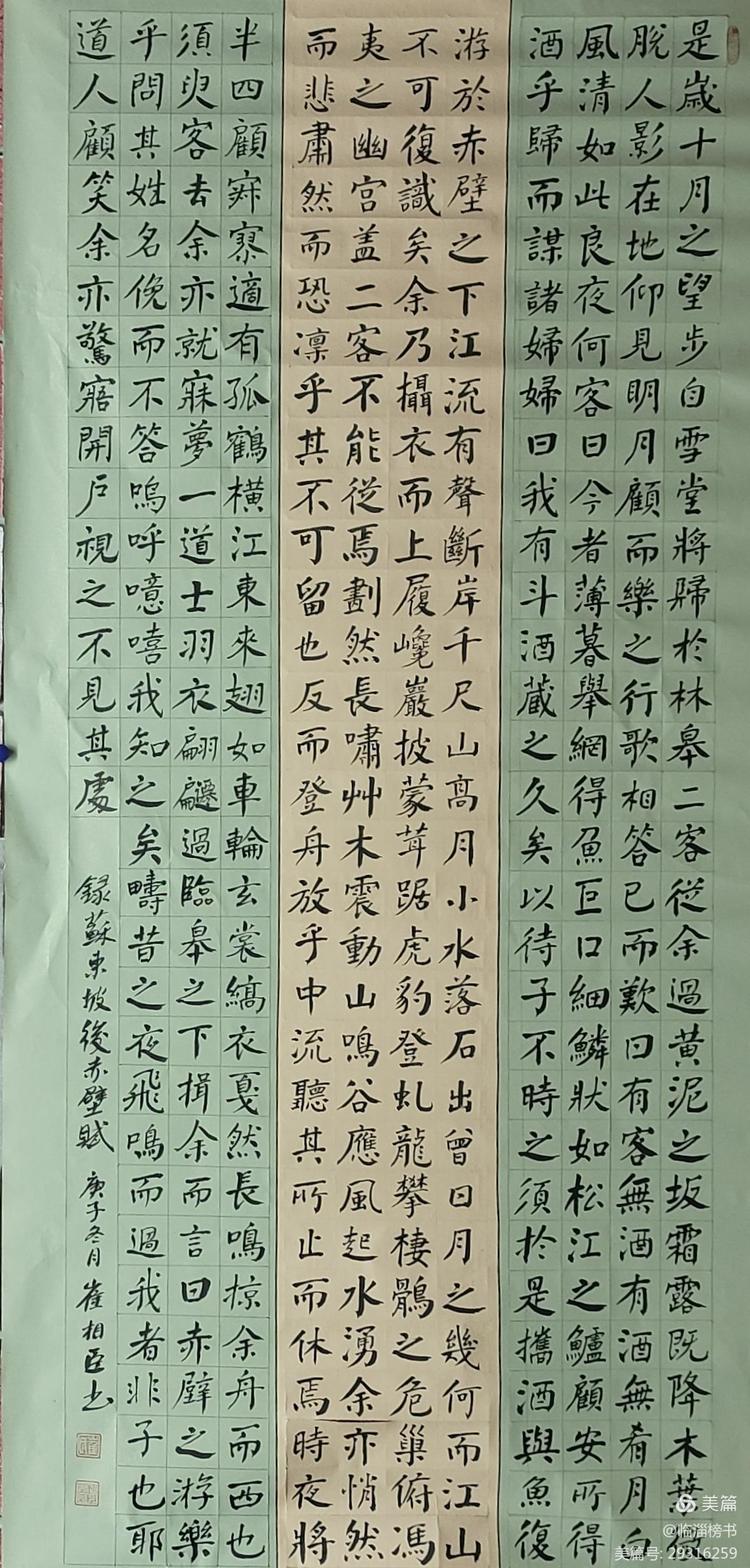 是歲十月之望步自雪堂將歸於林皋二客從余過黃泥之坂霜露既降木葉
脫人影在地仰見明月顧而樂之行歌相答已而歎曰有客無酒有酒無肴月白
風清如此良夜何客曰今者薄暮舉網得魚巨口細鱗狀如松江之鱸顧安所得
酒乎歸而謀諸婦婦曰我有斗酒藏之久矣以待子不時之須於是攜酒與魚復
游於赤壁之下江流有聲斷岸千尺山高月小水落石出曾日月之幾何而江山
不可復識矣余乃攝衣而上履巉巖披蒙茸踞虎豹登虬龍攀棲鶻之危巢俯馮
夷之幽宮盖二客不能從焉劃然長嘯艸木震動山鳴谷應風起水湧余亦悄然
而悲肅然而恐凜乎其不可留也反而登舟放乎中流聽其所止而休焉時夜將
半四顧寂寥適有孤鶴橫江東來翅如車輪玄裳縞衣戛然長鳴掠余舟而西也
須臾客去余亦就寐夢一道士羽衣翩躚過臨皋之下揖余而言曰赤壁之游樂
乎問其姓名俛而不答嗚呼噫嘻我知之矣疇昔之夜飛鳴而過我者非子也耶
道人顧笑余亦驚寤開戶視之不見其處
錄蘇東坡後赤壁賦 庚子冬月 崔相臣书
美篇
@临淄榜书
美篇号: 29316259